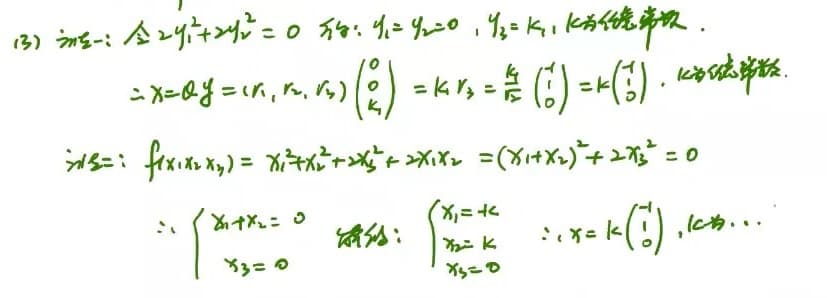 (3) 法一: 令 2y₁²+2y₂² = 0 可得: y₁=y₂=0, y₃=k₁, k为任意常数.
∴ x=Qy=(r₁, r₂, r₃) (0 0 k₁) = k₁r₃ = k₁/√2 (-1 1 0) = k(-1 1 0). k为任意常数.
法二: f(x₁x₂x₃) = x₁²+x₂²+2x₃²+2x₁x₂ = (x₁+x₂)²+2x₃² = 0
∴ { x₁+x₂=0 x₃=0 解得: { x₁=-k x₂=k x₃=0 ∴ x=k(-1 1 0), k为...